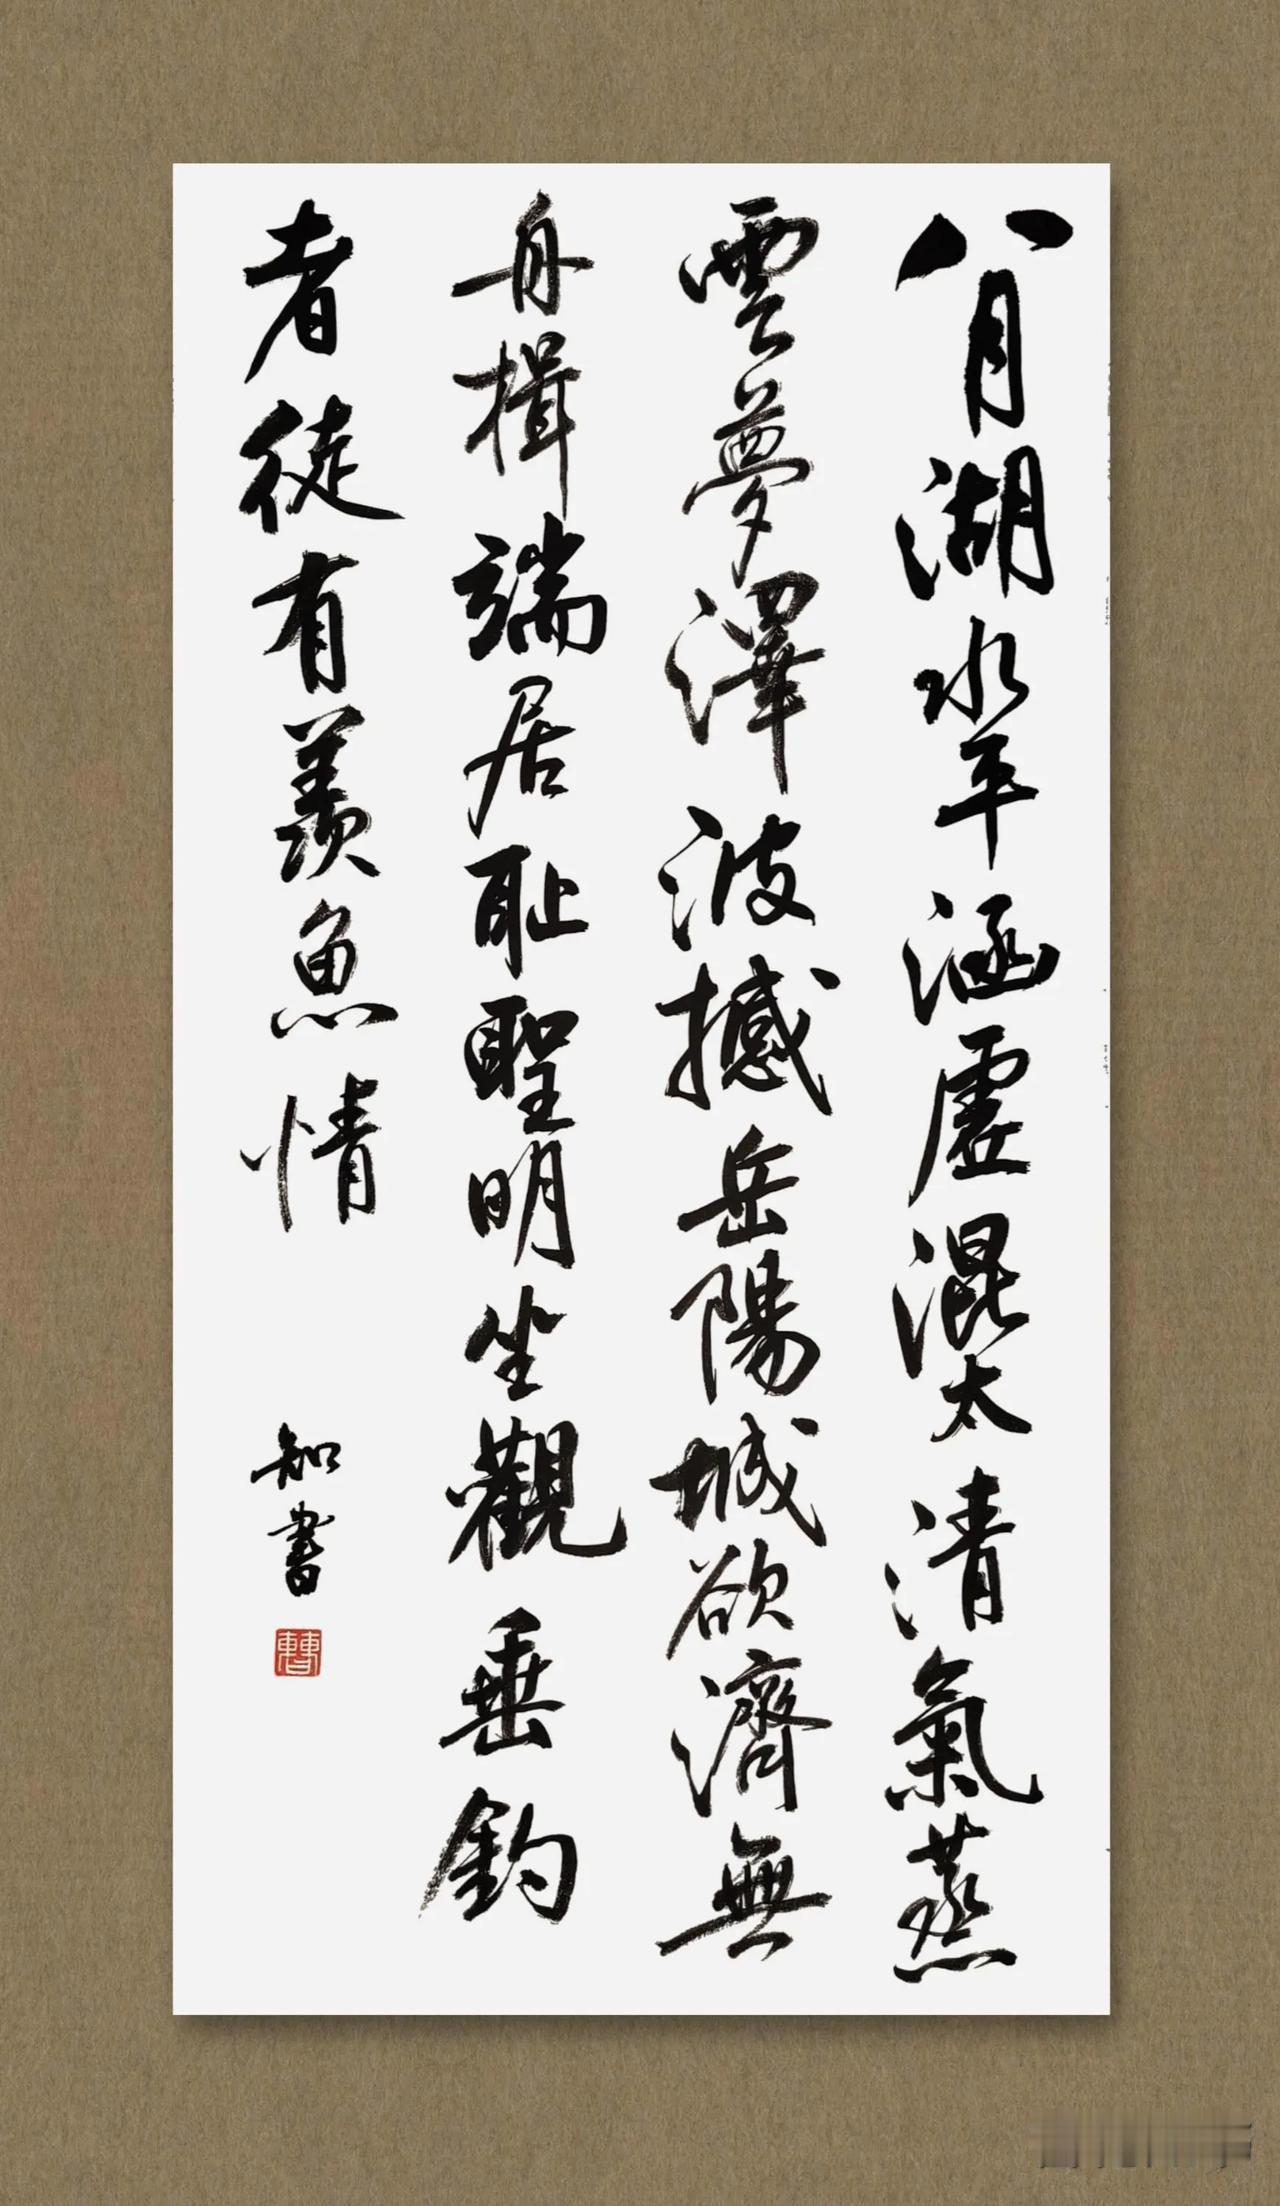 八月湖水平涵虛混太清氣蒸
雲夢澤波撼岳陽城欲濟無
舟楫端居耻聖明坐觀垂釣
者徒有羨魚情
知書